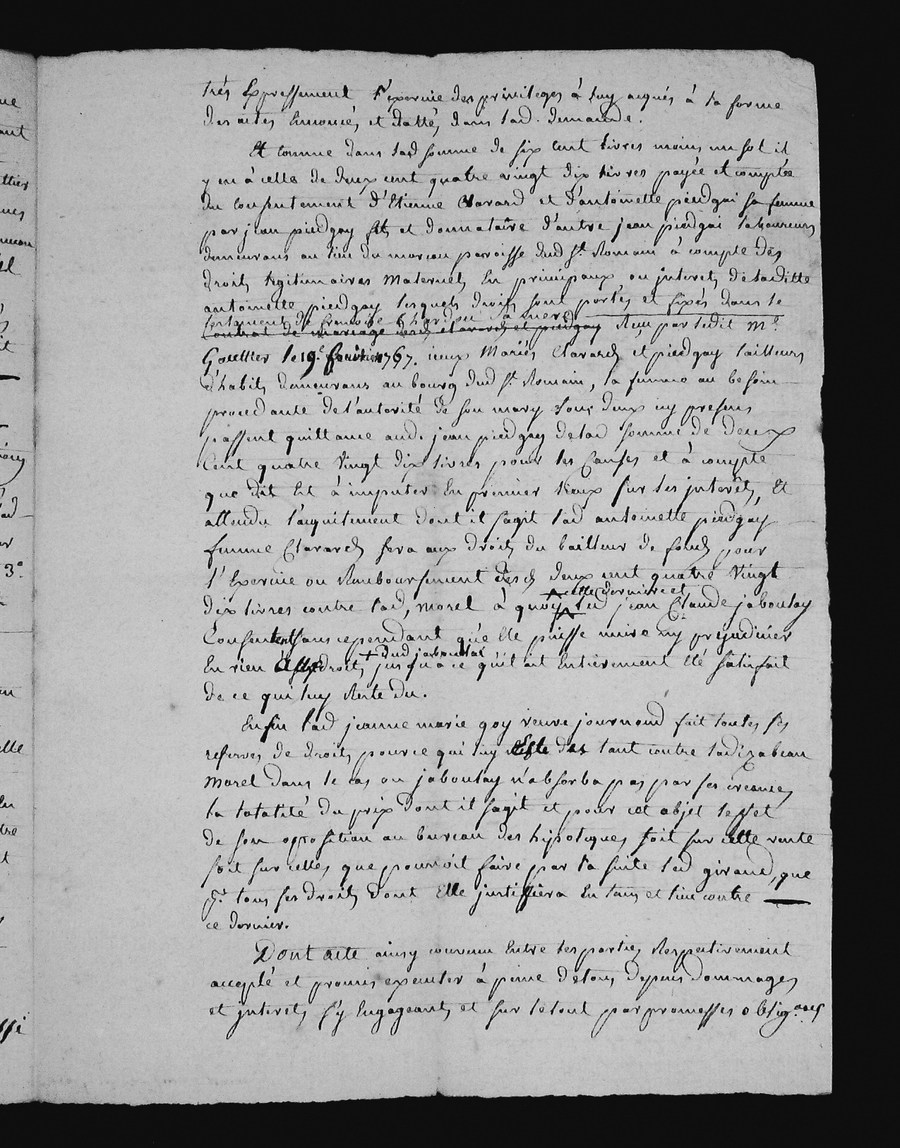 très Expressement l'exercice des privileges à luy acquis à la forme
des actes Ennoncés, et dattés, dans lad. demande.
Et comme dans lad somme de six cent livres moins un sol il
y en à celle de deux cent quatre vingt dix livres payée et comptée
du Consentement d'Etienne Clavard et d'antoinette piedgai sa femme
par jean piedgay fils et donnataire d'autre jean piedgai laboureurs
demeurans au lieu du moreau paroisse dud st. Romain à compte des
droits legitimaires maternels En principaux ou interets de laditte
antoinette piedgay lesquels droits sont portés et fixés dans le
testament de francoise Chardon sa mere
contrat de mariage desd. Clavard et piedgay Recu par ledit Me.
Gouttier le 19e. fevrier 1767. iceux Mariés Clavard et piedgay tailleurs
d'habits demeurans au bourg dud st. Romain, la femme au besoin
procedante de l'autorité de son mary tous deux icy presens
passent quittance aud. jean piedgay de lad somme de deux
Cent quatre Vingt dix livres pour les Causes et à compte
que dit Est à imputer En premier lieux sur les interets, Et
attendu l'acquitement dont il s'agit lad antoinette piedgay
femme Clavard sera aux droits du bailleur de fonds pour
l'Exercice ou Remboursement desd. deux cent quatre Vingt
dix livres contre lad. morel à quoy cette derniere et led jean Claude jaboulay
Consentent sans cependant qu'elle puisse nuire ny prejudicier
En rien droits + dud jaboulay jusqu'à ce qu'il ait Entierement Eté satisfait
de ce qui luy Reste du.
Enfin lad jeanne marie goy veuve journoud fait toutes ses
reserves de droits pour ce qui luy Reste du tant contre lad izabeau
Morel dans le cas ou jaboulay n'absorba pas par ses creances
la totalité du prix dont il s'agit et pour cet objet l'effet
de son opposition au bureau des hipoteques soit sur cette vente
soit sur celles que pourroit faire par la suite led giraud, que
pr. tous ses droits dont Elle justiffiera En tems et lieu contre
ce dernier.
Dont acte ainsy convenu Entre les parties Respectivement
accepté et promis executer à peine de tous depens dommages
et interets s'y Engageant et sur le tout par promesses obligaons